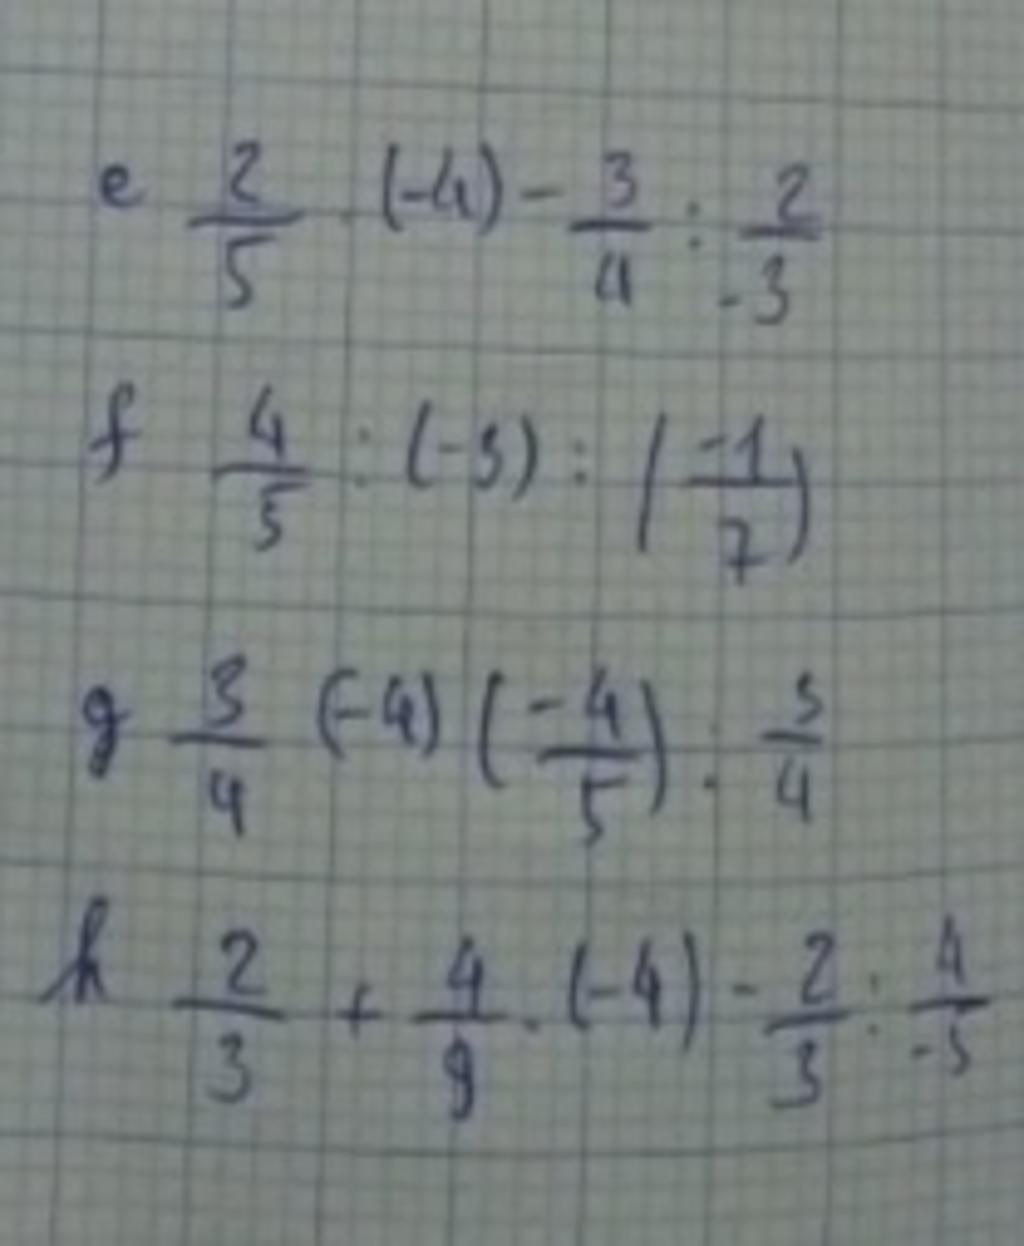 e 2/5 . (-4) - 3/4 : 2/-3
f 4/5 : (-3) : (-1/7)
g 3/4 (-4) (-4/5) : 3/4
h 2/3 + 4/9 . (-4) - 2/3 : 4/-5